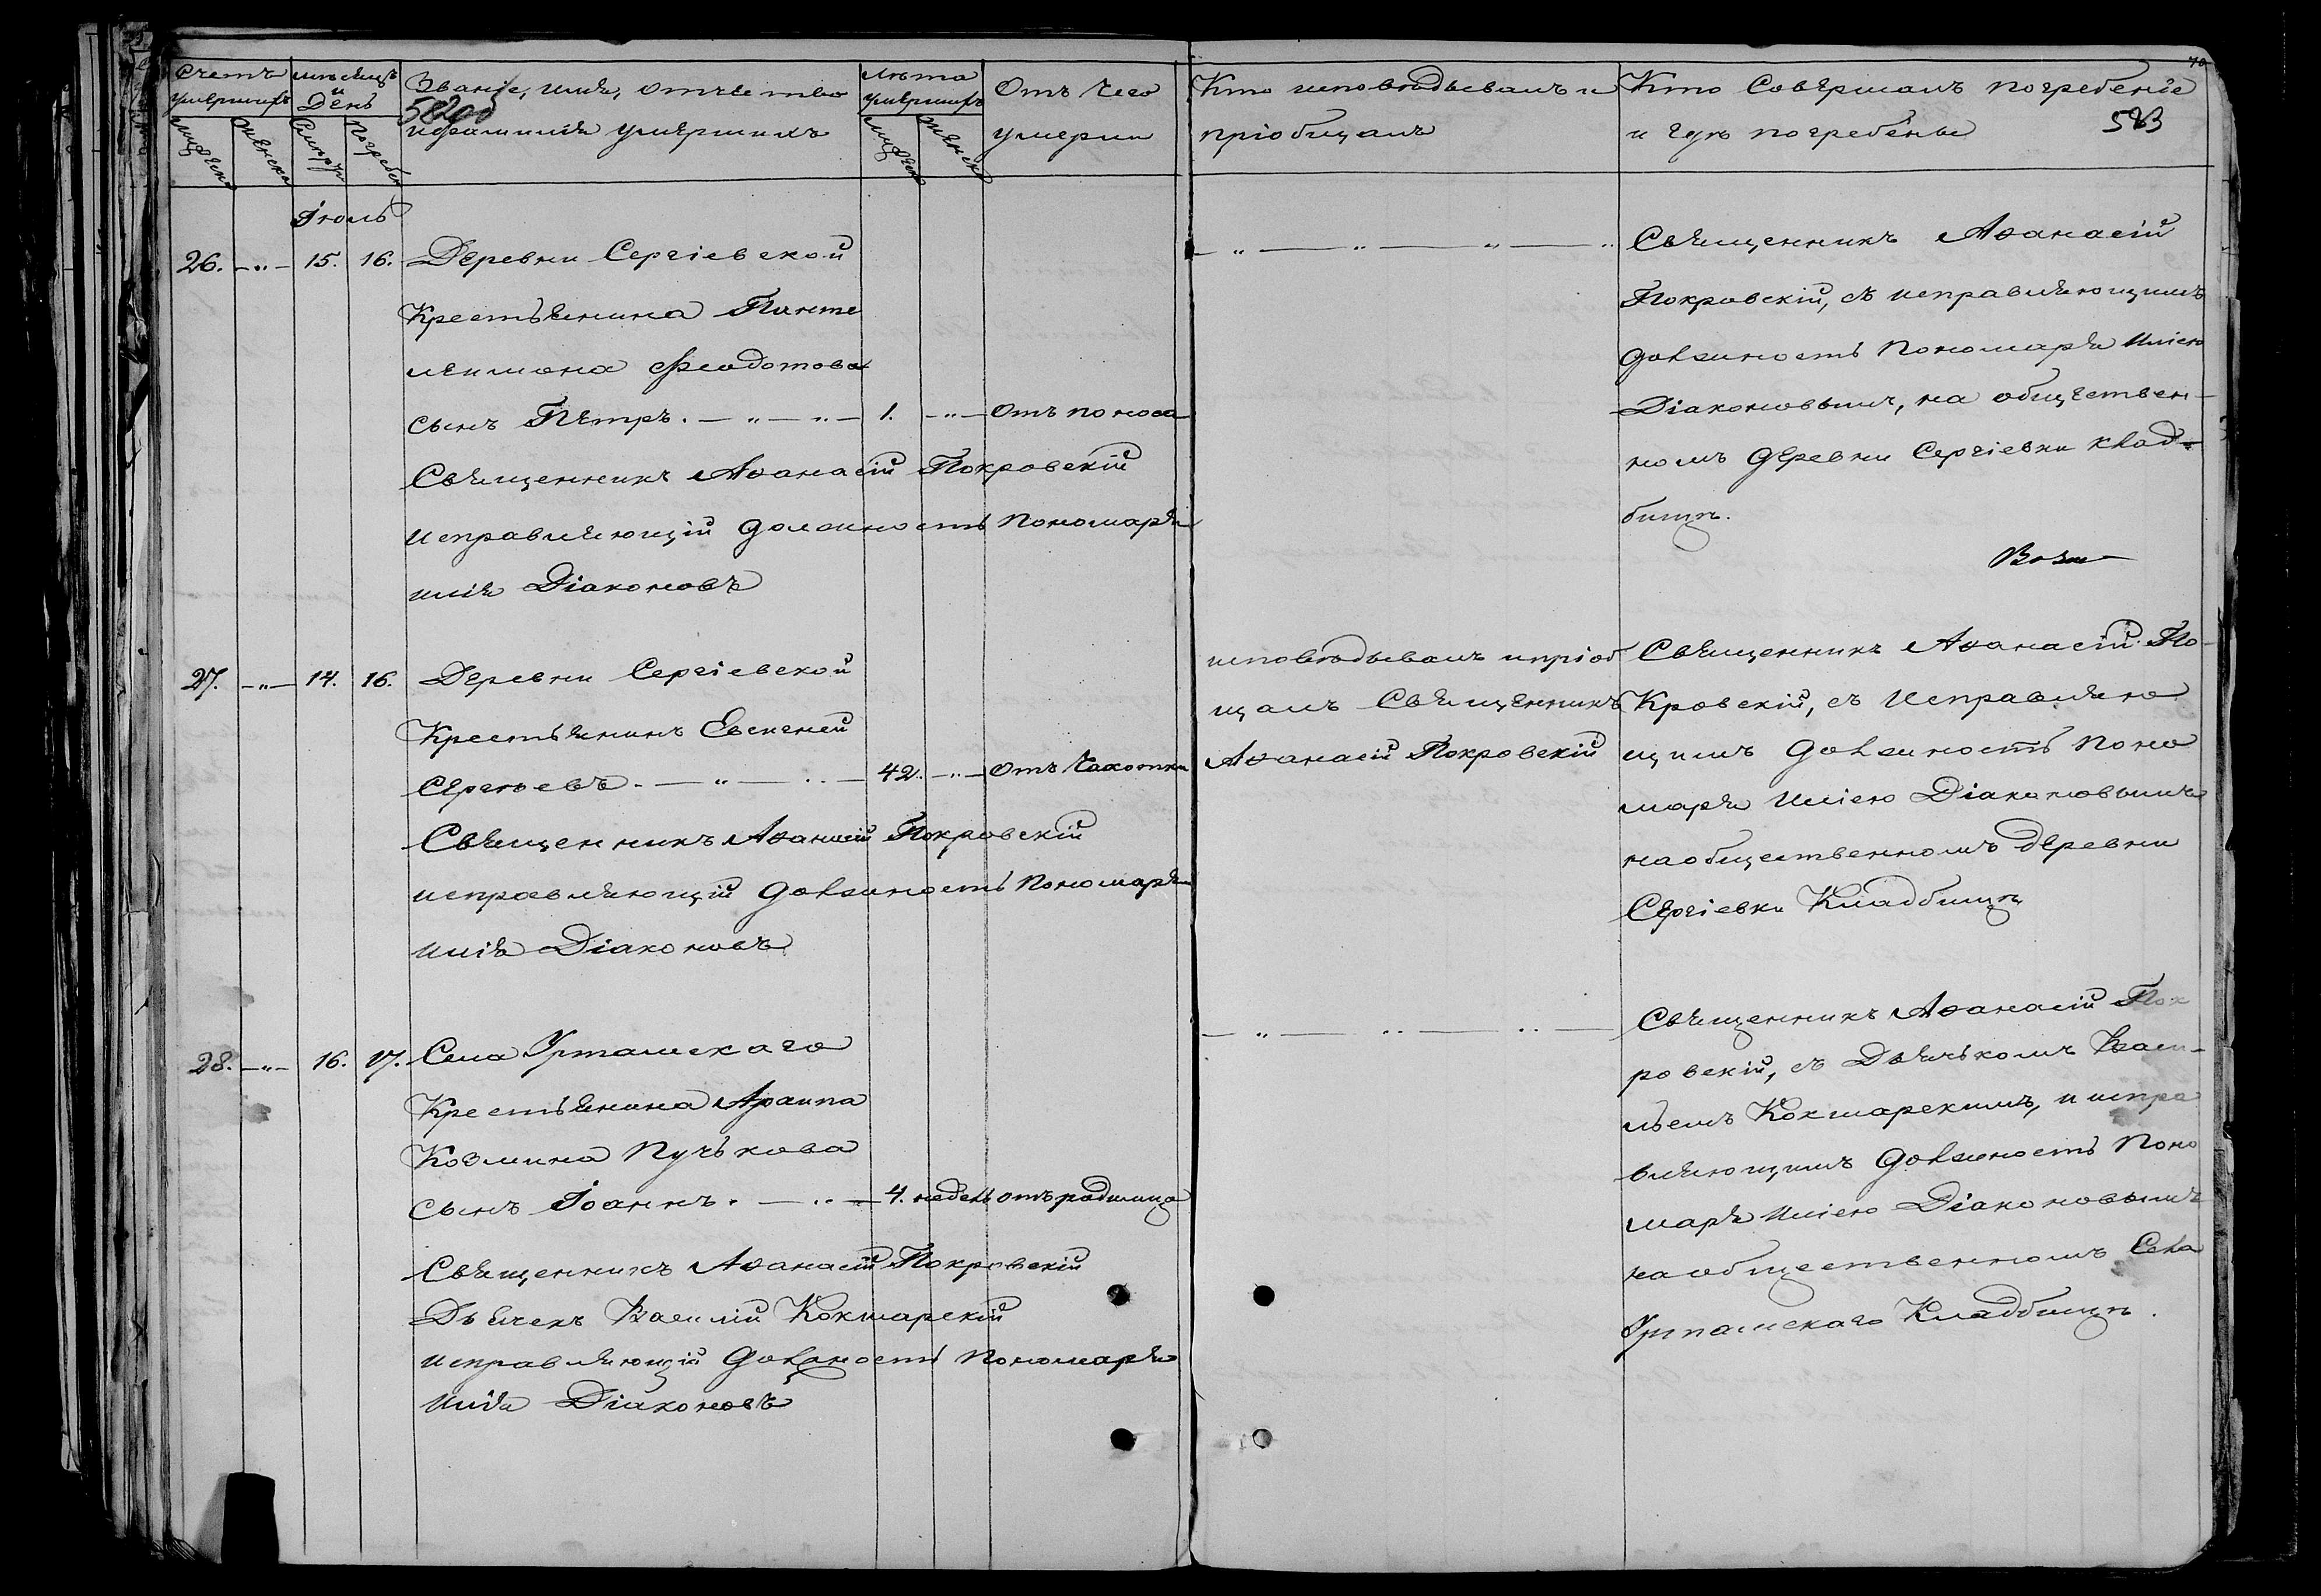 Счетъ умершихъ
Мужеска
Женска
мѣсяцъ и День
Смерти
Погребен
Званіе, имя, отчество
и фамилія умершихъ
582об
лѣта умершихъ
Мужеск
Женска
Отъ чего
умерли
Кто исповѣдывалъ и
пріобщалъ
Кто Совершалъ погребеніе
и гдѣ погребены
583
70
Іюль
26. —„— 15. 16. Деревни Сергіевской
Крестьянина Панте
леимона Феодотова
сынъ Петръ. — „ — „ — 1. —„— Отъ поноса
Священникъ Аѳанасій Покровскій
исправляющій должность Пономаря
Илія Діаконовъ
— „ — „ — „ — „
Священникъ Аѳанасій
Покровскій, съ исправляющимъ
должность Пономаря Иліею
Діаконовымъ, на обществен-
номъ деревни Сергіевки клад-
бищѣ.
27. —„— 14. 16. Деревни Сергіевской
Крестьянинъ Евсигней
Сергѣевъ. — „ — „ — 42. —„— Отъ Чахотки
Священникъ Аѳанасій Покровскій
исправляющій должность Пономаря
Илія Діаконовъ
исповѣдывалъ и пріоб
щалъ Священникъ
Аѳанасій Покровскій
Священникъ Аѳанасій По-
кровскій, съ Исправляю
щимъ должность Поно
маря Иліею Діаконовымъ
на общественномъ деревни
Сергіевки Кладбищѣ
28. —„— 16. 17. Села Урташскаго
Крестьянина Архипа
Козмина Пучькова
сынъ Іоаннъ. — „ — 4. недель отъ родимца
Священникъ Аѳанасій Покровскій
Дьячекъ Василій Кокшарскій
исправляющій Должность Пономаря
Илія Діаконовъ
— „ — „ — „ —
Священникъ Аѳанасій Пок
ровскій, съ Дьячькомъ Васи-
льемъ Кокшарскимъ, и испра
вляющимъ должность Поно
маря Иліею Діаконовымъ
на общественномъ Села
Урташскаго Кладбищѣ.